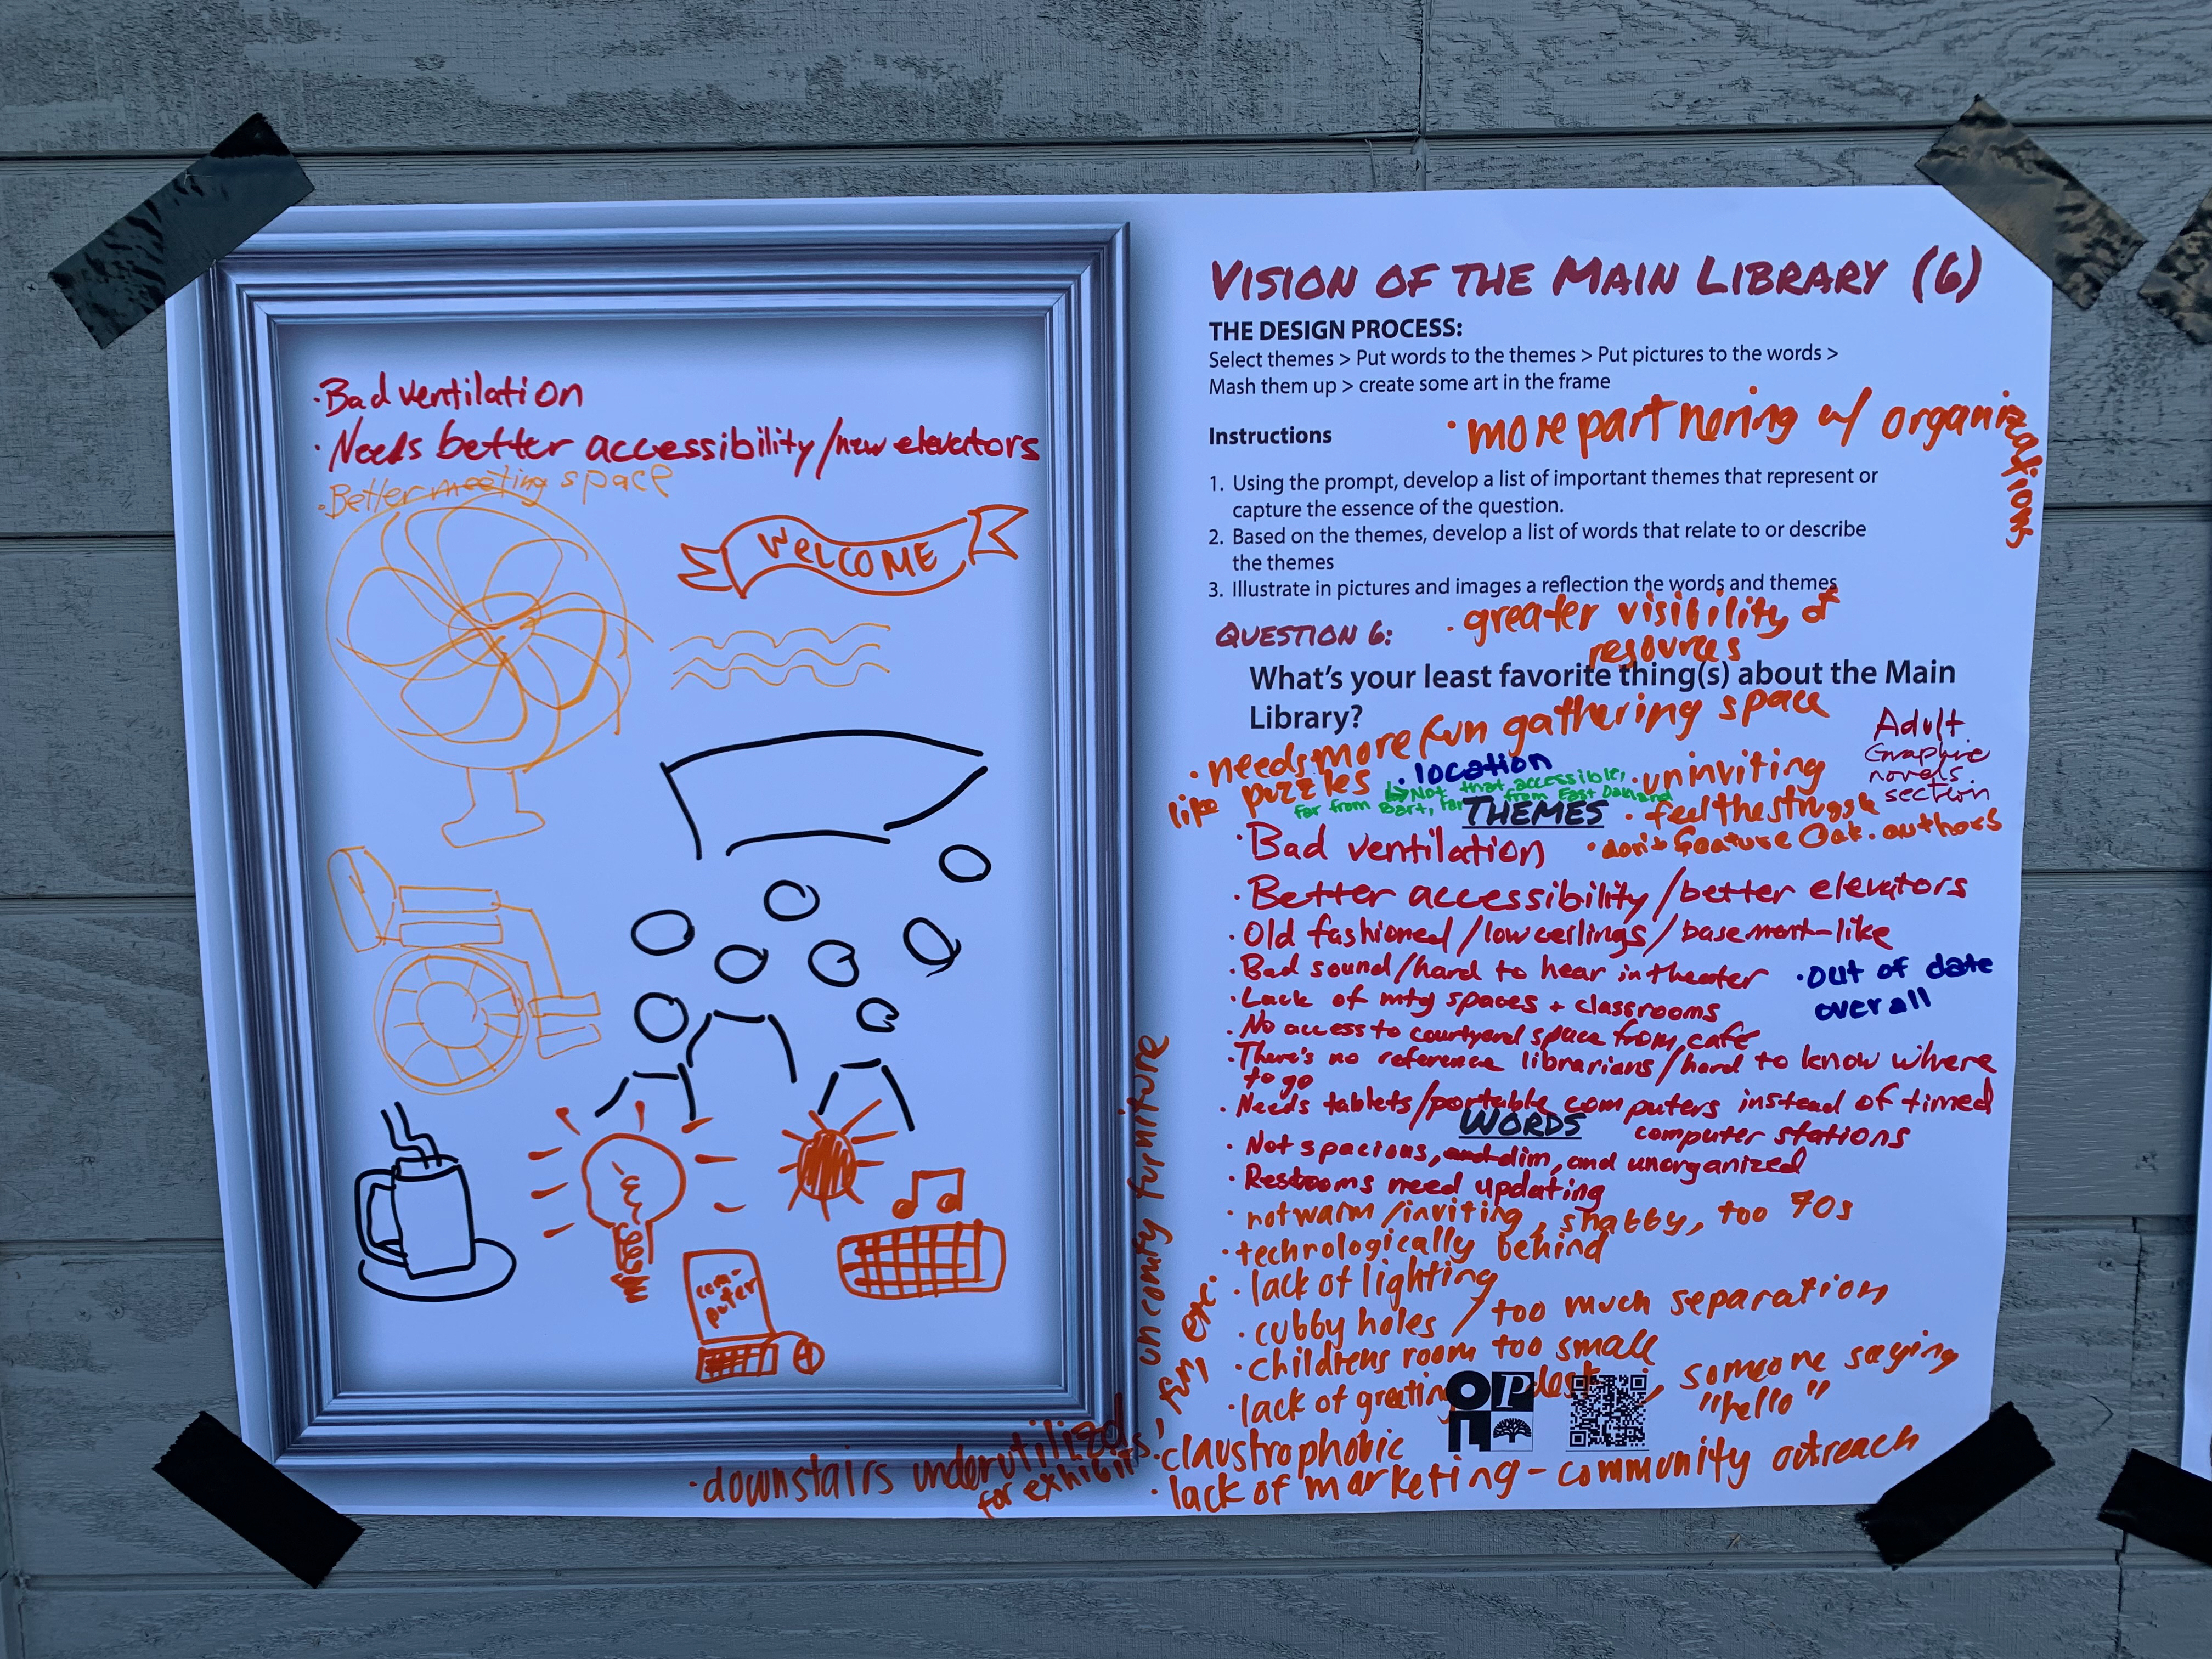 ·Bad ventilation
·Needs better accessibility/new elevators
·Better meeting space
WELCOME
com-
puter
VISION OF THE MAIN LIBRARY (6)
THE DESIGN PROCESS:
Select themes > Put words to the themes > Put pictures to the words >
Mash them up > create some art in the frame
·more partnering w/ organizations
Instructions
1. Using the prompt, develop a list of important themes that represent or
capture the essence of the question.
2. Based on the themes, develop a list of words that relate to or describe
the themes
3. Illustrate in pictures and images a reflection the words and themes
·greater visibility of
resources
QUESTION 6:
What's your least favorite thing(s) about the Main
Library?
·needs more fun gathering space
like puzzles
·location
↳Not that accessible,
far from Bart, far from East Oakland
·uninviting
Adult
Graphic
novels
section
THEMES
·feel the struggle
·don't feature Oak. authors
·Bad ventilation
·Better accessibility/better elevators
·Old fashioned/low ceilings/basement-like
·Bad sound/hard to hear in theater
·out of date
overall
·Lack of mtg spaces + classrooms
·No access to courtyard space from cafe
·There's no reference librarians/hard to know where
to go
·Needs tablets/portable computers instead of timed
computer stations
WORDS
·Not spacious, and dim, and unorganized
·Restrooms need updating
·not warm/inviting, shabby, too 70s
·technologically behind
·lack of lighting
·cubby holes / too much separation
·childrens room too small
·lack of greeting desk, someone saying
"hello"
OPL
·claustrophobic
·lack of marketing - community outreach
·downstairs underutilized
for exhibits, fun, etc.
uncomfy furniture